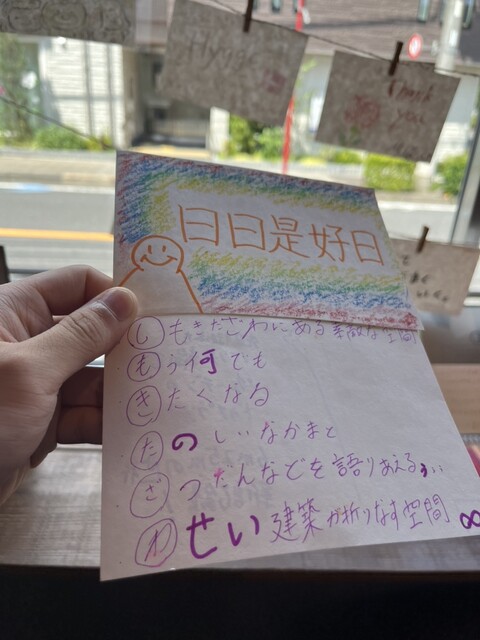 Thank
you
日日是好日
しもきたざわにある素敵な空間
もう何でも
きたくなる
たのしいなかまと
ざつだんなどを語りあえる
わせい建築が折りなす空間 ∞